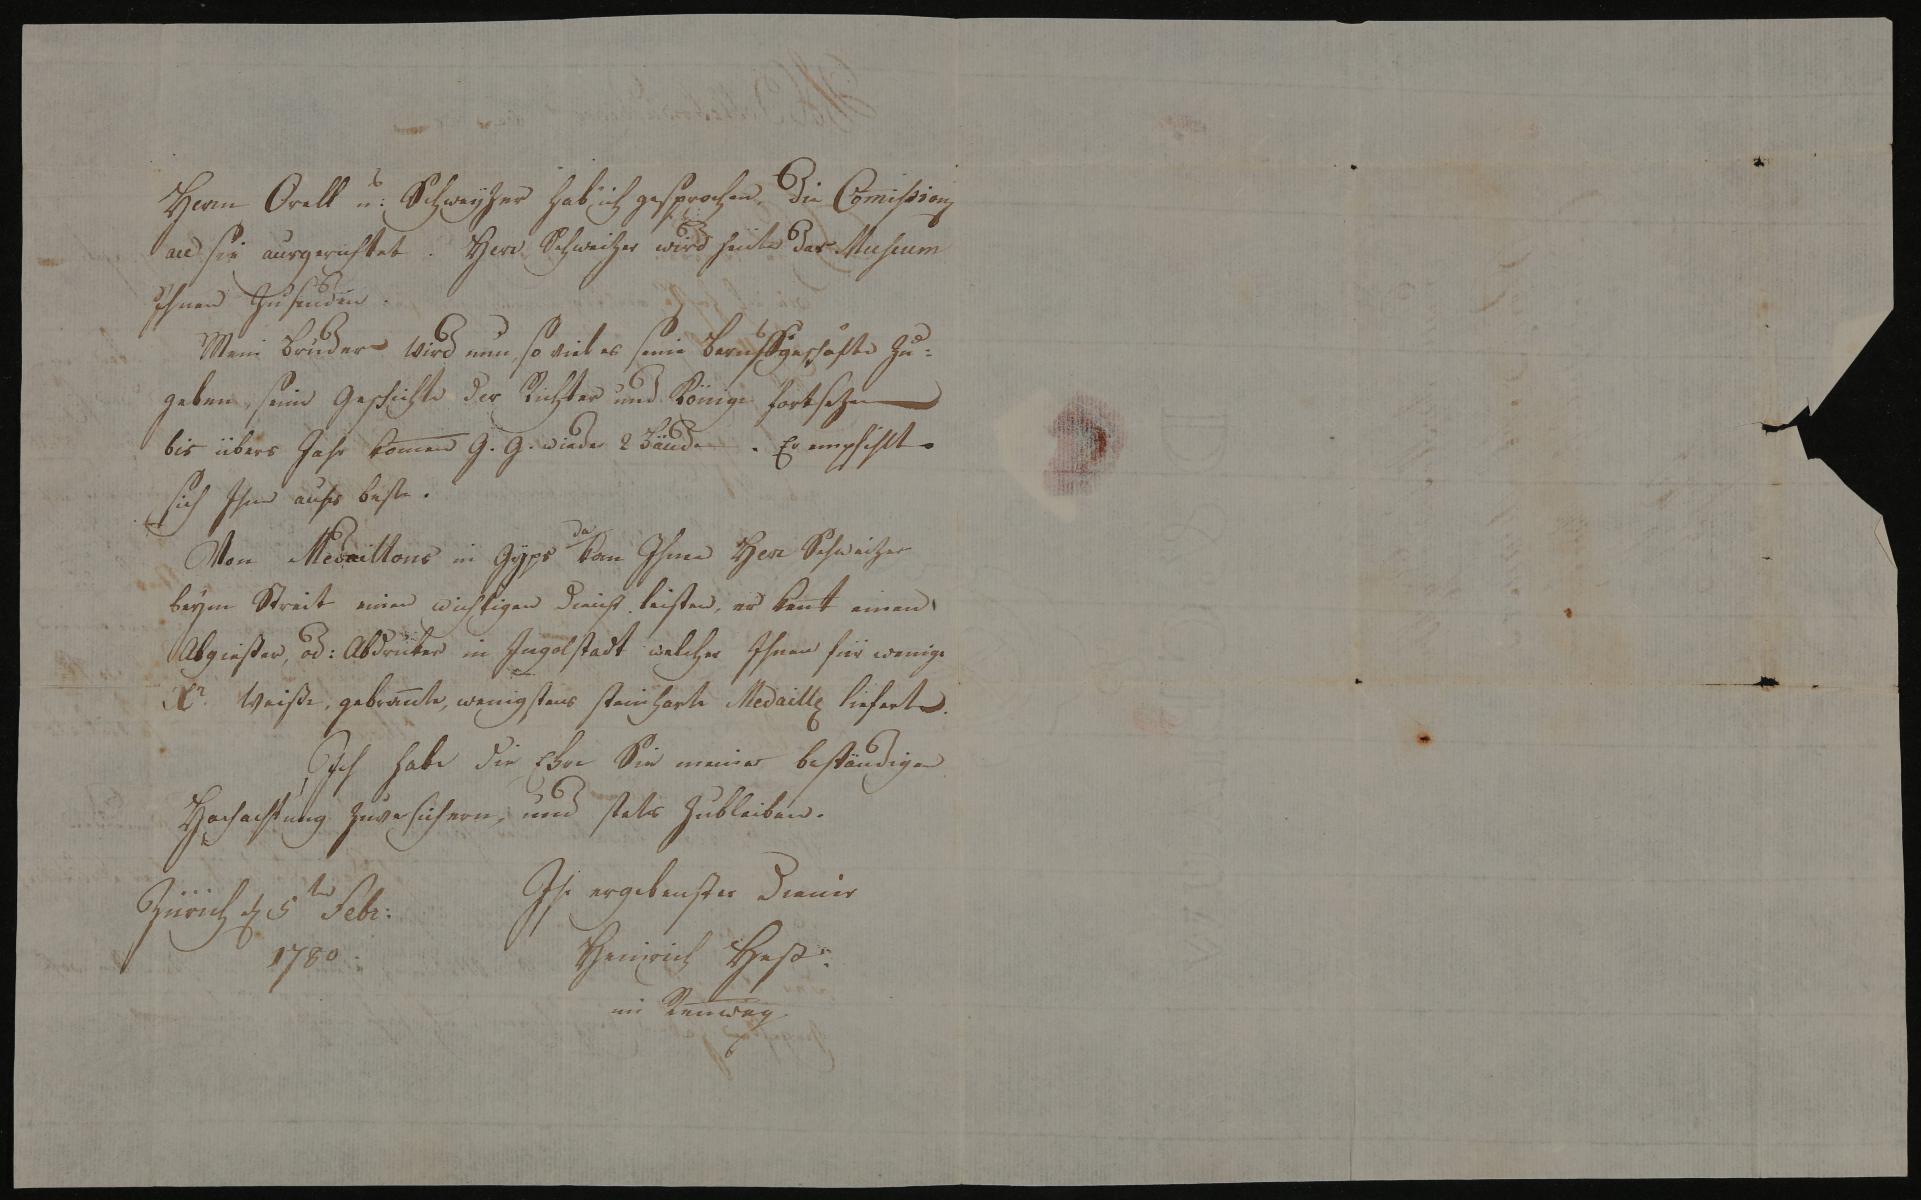 Herrn Orell u: Schweyzer hab ich gesprochen, die Com̅ißionen
all sie ausgerichtet. Herr Schweitzer wird heüte das Museum
Ihnen zusenden.
Mein Bruder wird nun, so viel es seine Berufsgeschäfte zu-
geben, seine Geschichte der Richter und Könige fortsetzen
bis übers Jahr kom̅en G. G. wieder 2 Bände. Er empfihlt
sich Ihne aufs beste.
Von Medaillons in Gyps da kan Ihnen Herr Schweitzer
beym Streit einen wichtigen Dienst leisten, er kent einen
Abgießer, od: Abdruker in Ingolstadt welcher Ihnen für wenige
Xr. Weiße, gebran̅te, wenigstens steinharte Medaillen liefert.
Ich habe die Ehre Sie meiner beständigen
Hochachtung zuversichern, und stets zubleiben.
Ihr ergebenster Diener
Zürich d 5ten Febr:
1780.
Heinrich Heß.
im Ren̅weg